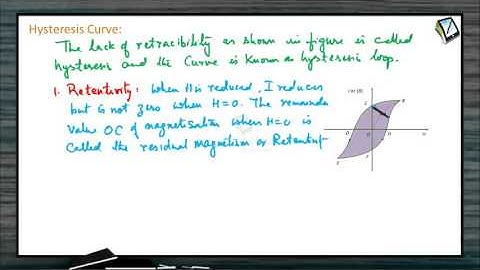 Hysteresis Curve:
The lack of retracibility as shown in figure is called
hysteresis and the Curve is known as hysteresis loop.
1. Retentivity: When H is reduced, I reduces
but is not zero when H=0. The remainder
value OC of magnetisation when H=0 is
called the residual magnetism or Retentif